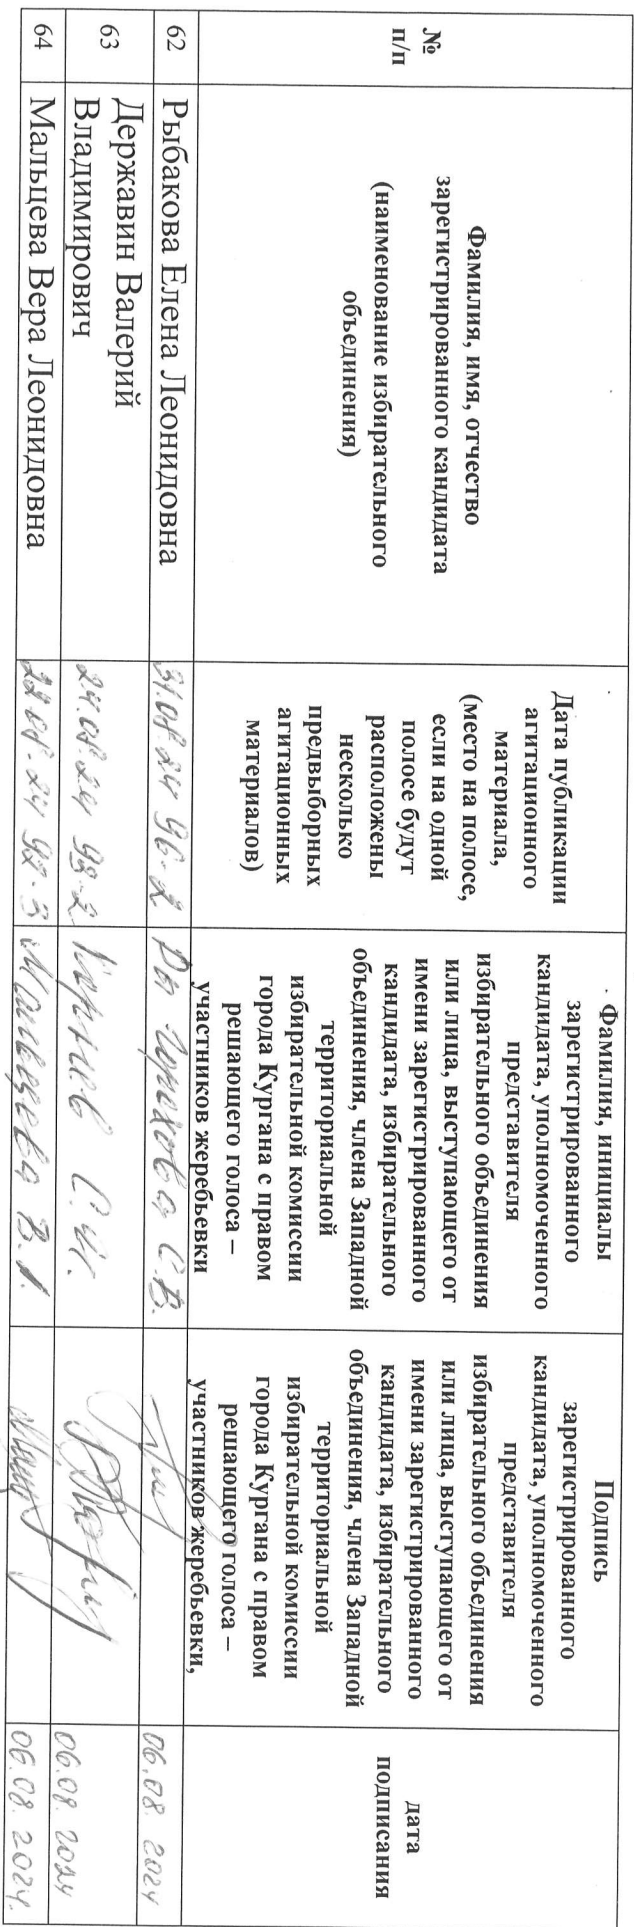 №
п/п
Фамилия, имя, отчество
зарегистрированного кандидата
(наименование избирательного
объединения)
Дата публикации
агитационного
материала,
(место на полосе,
если на одной
полосе будут
расположены
несколько
предвыборных
агитационных
материалов)
Фамилия, инициалы
зарегистрированного
кандидата, уполномоченного
представителя
избирательного объединения
или лица, выступающего от
имени зарегистрированного
кандидата, избирательного
объединения, члена Западной
территориальной
избирательной комиссии
города Кургана с правом
решающего голоса –
участников жеребьевки
Подпись
зарегистрированного
кандидата, уполномоченного
представителя
избирательного объединения
или лица, выступающего от
имени зарегистрированного
кандидата, избирательного
объединения, члена Западной
территориальной
избирательной комиссии
города Кургана с правом
решающего голоса –
участников жеребьевки,
дата
подписания
62
Рыбакова Елена Леонидовна
31.08.24 96-2
С.В.
06.08. 2024
63
Державин Валерий
Владимирович
24.08.24 93-2
06.08. 2024
64
Мальцева Вера Леонидовна
22.08.24 92-3
Мальцева В.Л.
06.08. 2024.